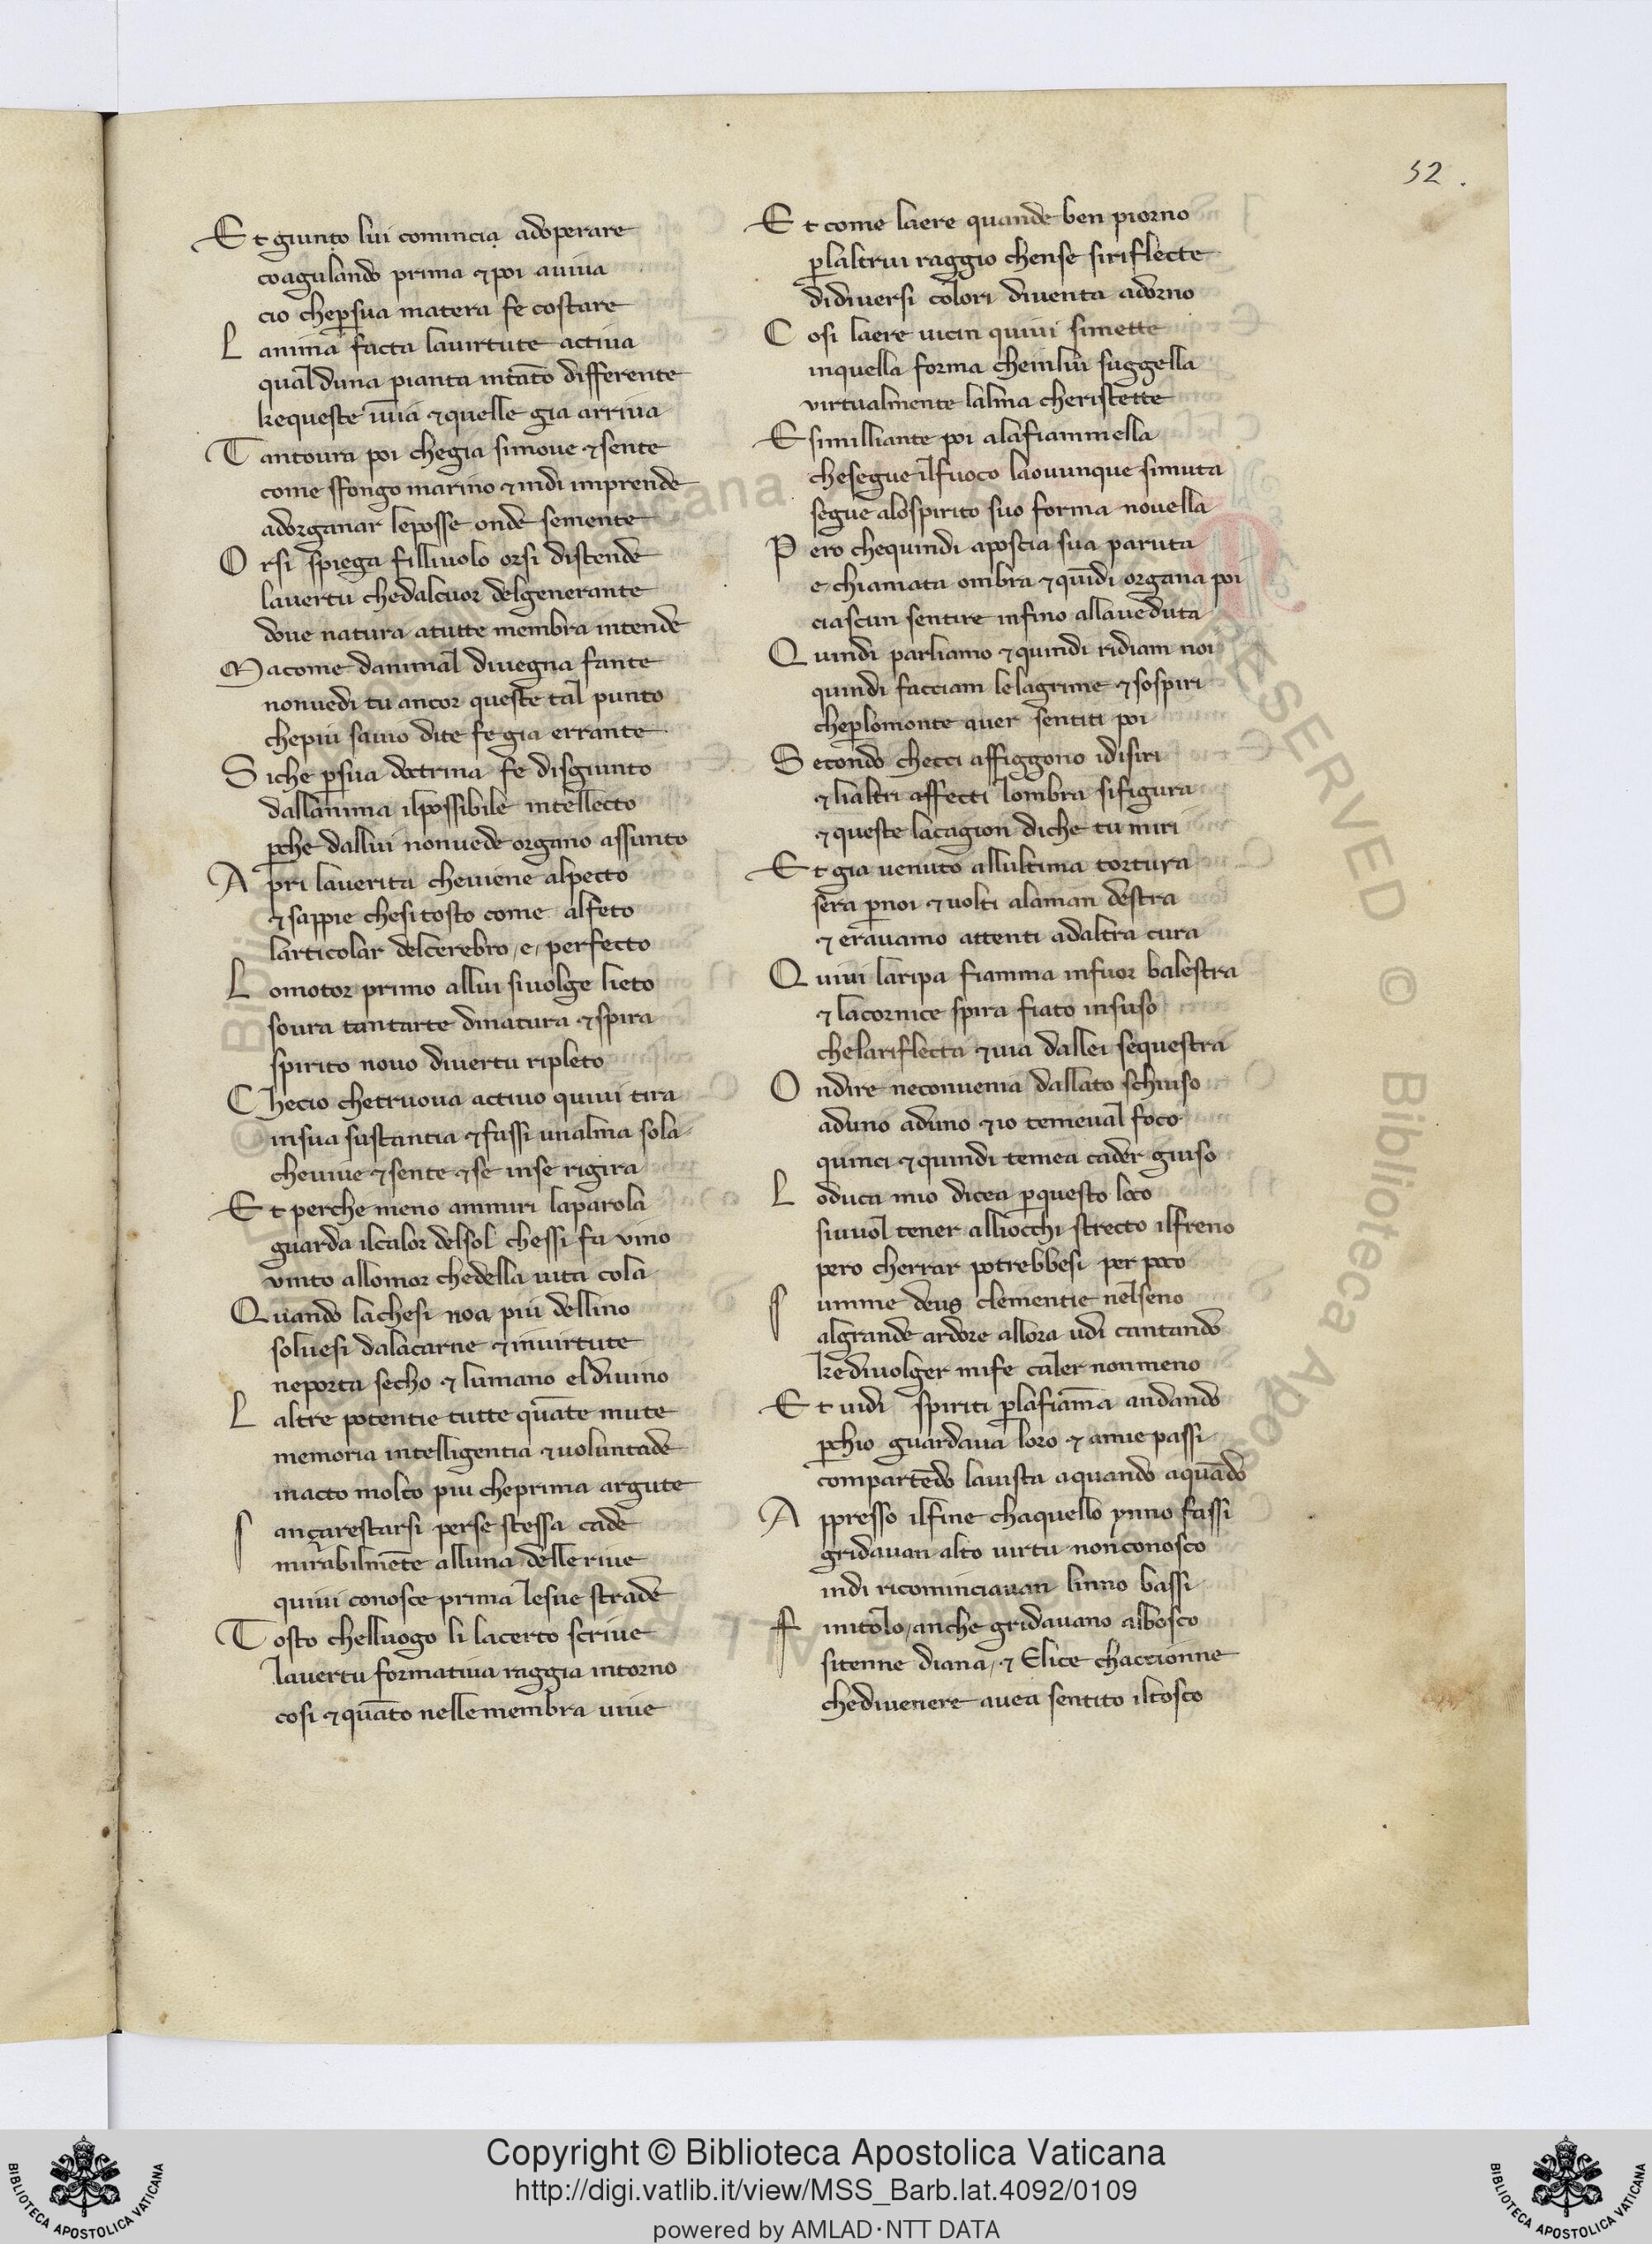 52.
Et giunto lui comincia adoperare
coagulando prima & poi auiua
cio chepsua matera fe costare
L anima facta lauirtute actiua
qual duna pianta intāto differente
kequeste ī uia & quelle gia arriua
T antoura poi chegia simoue & sente
come sfongo marino & indi imprende
adorganar leposse onde semente
O rsi spiega filliuolo orsi distende
lauertu chedalcuor delgenerante
doue natura atutte membra intende
M acome danimal diuegna fante
nonuedi tu ancor queste tal punto
chepiu sauio dite fe gia errante
S iche psua doctrina fe disgiunto
dallanima ilpossibile intellecto
pche dallui nonuede organo assunto
A pri lauerita cheuiene alpecto
& sappie chesi tosto come alfeto
larticolar delcerebro, e, perfecto
L omotor primo allui siuolge lieto
soura tantarte dinatura & spira
spirito nouo diuertu ripleto
C hecio chetruoua actiuo quiui tira
insua sustantia & fassi unalma sola
cheuiue & sente & se inse rigira
E t perche meno ammiri laparola
guarda ilcalor delsol chessi fa vino
vnito allomor chedella uita cola
Quando lachesi noa piu dellino
soluesi dalacarne & inuirtute
neporta secho & lumano eldiuino
L altre potentie tutte quāte mute
memoria intelligentia & uoluntade
inacto molto piu cheprima argute
S ançarestarsi perse stessa cade
mirabilmēte alluna dellerive
quiui conosce prima lesue strade
T osto chelluogo li lacerto scriue
lauertu formatiua raggia intorno
cosi & quāto nellemembra uiue
E t come laere quande ben piorno
플laltrui raggio chense siriflecte
didiuersi colori diuenta adorno
C osi laere uicin quiui simette
inquella forma cheinlui suggella
virtualmente lalma cheristette
E similliante poi alafiammella
chesegue ilfuoco laouunque simuta
segue alospirito suo forma nouella
P ero chequindi aposcia sua paruta
e chiamata ombra & quīdi organa poi
ciascun sentire infino allaueduta
Q uindi parliamo & quindi ridiam noi
quindi facciam lelagrime & sospiri
cheplomonte auer sentiti poi
S econdo checci affiggono idisiri
& lialtri affecti lombra sifigura
& queste lacagion diche tu miri
E t gia uenuto allultima tortura
sera pnoi & uolti alaman destra
& erauamo attenti adaltra cura
Q uiui laripa fiamma infuor balestra
& lacornice spira fiato insuso
chelariflecta & uia dallei sequestra
O ndire neconuenia dallato schiuso
aduno aduno & io temeual foco
quinci & quindi temea cader giuso
L oduca mio dicea pquesto loco
siuuol tener alliocchi strecto ilfreno
pero cherrar potrebbesi per poco
S umme deus clementie nelseno
algrande ardore allora udi cantando
kediuolger mife caler nonmeno
E t uidi spiriti plafiāma andando
pchio guardaua loro & amie passi
compartēdo lauista aquando aquādo
A ppresso ilfine chaquello ynno fassi
gridauan alto uirtu nonconosco
indi ricominciauan linno bassi
F initolo, anche gridauano albosco
sitenne diana, & Elice chaccionne
chediuenere auea sentito iltosco
Copyright © Biblioteca Apostolica Vaticana
http://digi.vatlib.it/view/MSS_Barb.lat.4092/0109
powered by AMLAD·NTT DATA
BIBLIOTECA APOSTOLICA VATICANA
BIBLIOTECA APOSTOLICA VATICANA